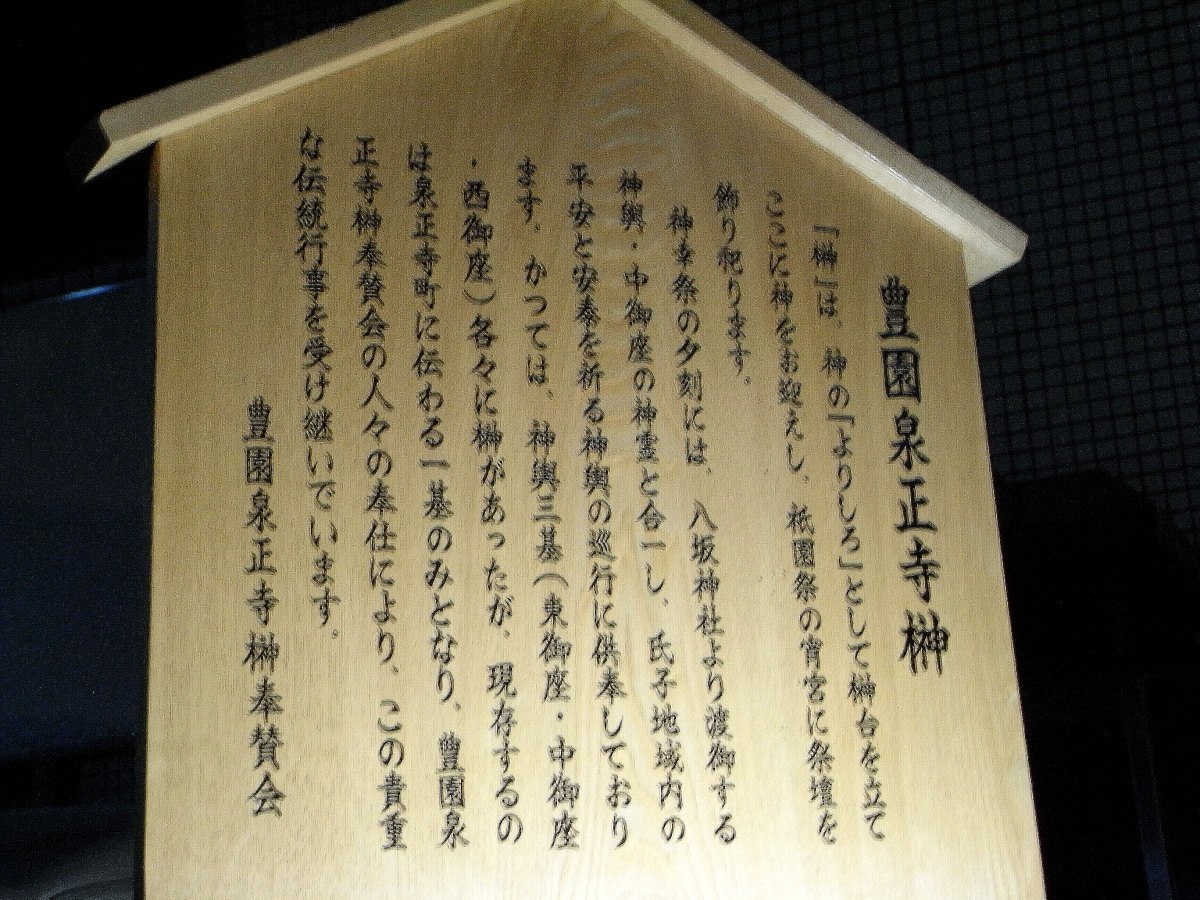 豊園泉正寺榊
『榊』は、神の『よりしろ』として榊台を立て
ここに神をお迎えし、祇園祭の宵宮に祭壇を
飾り祀ります。
神幸祭の夕刻には、八坂神社より渡御する
神輿・中御座の神霊と合一し、氏子地域内の
平安と安泰を祈る神輿の巡行に供奉しており
ます。かつては、神輿三基(東御座・中御座
・西御座)各々に榊があったが、現存するの
は泉正寺町に伝わる一基のみとなり、豊園泉
正寺榊奉賛会の人々の奉仕により、この貴重
な伝統行事を受け継いでいます。
豊園泉正寺榊奉賛会